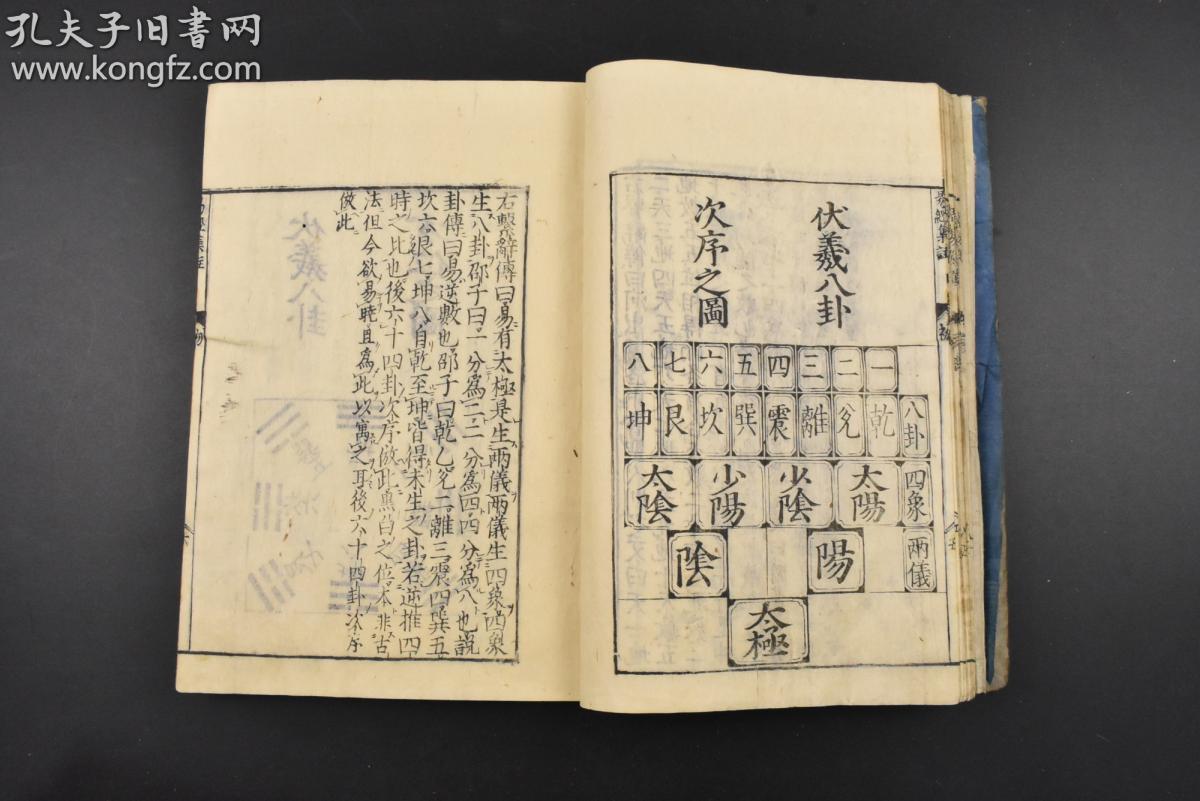 孔夫子旧书网
www.kongfz.com
伏羲八卦
次序之圖
一 二 三 四 五 六 七 八
八卦 乾 兌 離 震 巽 坎 艮 坤
四象 太陽 少陰 少陽 太陰
兩儀 陽 陰
太極
右繫辭傳曰易有太極是生兩儀兩儀生四象四象
生八卦邵子曰一分爲二二分爲四四分爲八也說
卦傳曰易逆數也邵子曰乾一兌二離三震四巽五
坎六艮七坤八自乾至坤皆得未生之卦若逆推四
時之比也後六十四卦次序倣此黒白之位本非古
法但今欲易曉且爲此以寓之耳後六十四卦次序
倣此